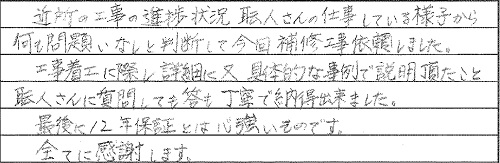 近所の工事の進捗状況 職人さんの仕事している様子から
何も問題いなしと判断して今回補修工事依頼しました。
工事着工に際し詳細に又具体的な事例で説明頂たこと
職人さんに質問しても答も丁寧で納得出来ました。
最後に12年保証とは心強いものです。
全てに感謝します。